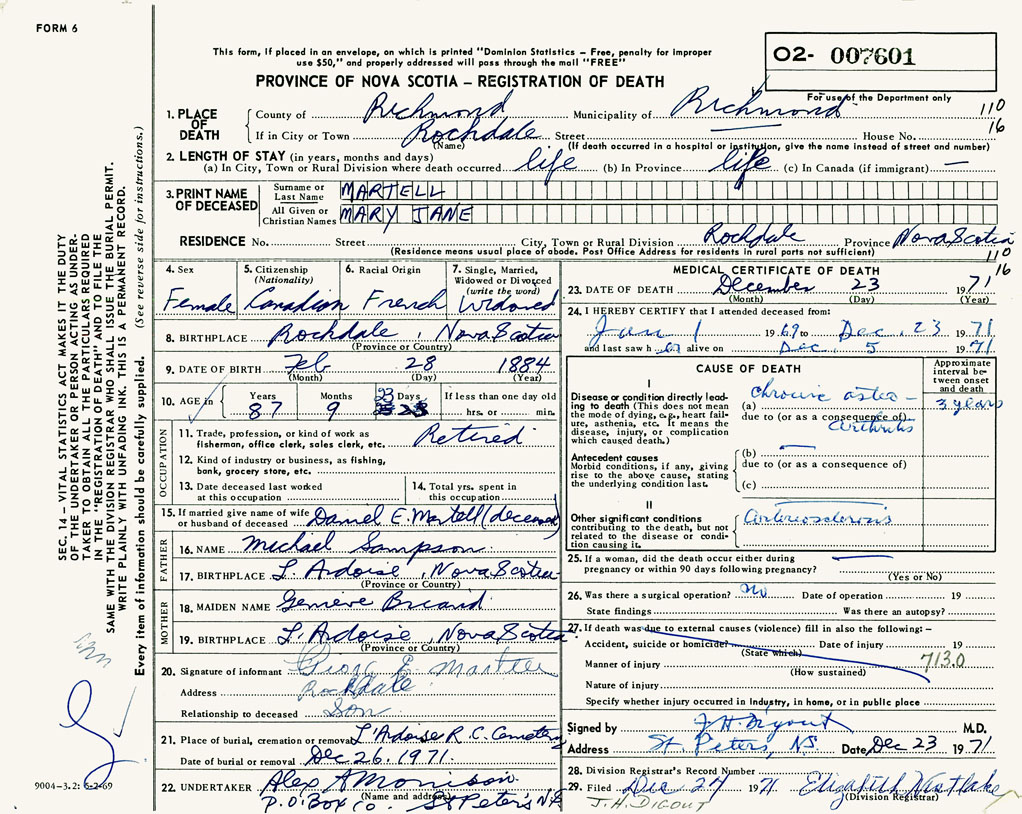 FORM 6
This form, if placed in an envelope, on which is printed "Dominion Statistics — Free, penalty for improper
use $50," and properly addressed will pass through the mail "FREE"
O2- 007601
PROVINCE OF NOVA SCOTIA — REGISTRATION OF DEATH
For use of the Department only
110
16
1. PLACE OF DEATH
County of Richmond Municipality of Richmond
If in City or Town Rochdale Street House No.
(Name) (If death occurred in a hospital or institution, give the name instead of street and number)
2. LENGTH OF STAY (in years, months and days)
(a) In City, Town or Rural Division where death occurred life (b) In Province life (c) In Canada (if immigrant) —
3. PRINT NAME OF DECEASED
Surname or Last Name MARTELL
All Given or Christian Names MARY JANE
RESIDENCE No. Street City, Town or Rural Division Rochdale Province Nova Scotia
(Residence means usual place of abode. Post Office Address for residents in rural parts not sufficient)
110
16
4. Sex Female
5. Citizenship (Nationality) Canadian
6. Racial Origin French
7. Single, Married, Widowed or Divorced (write the word) Widowed
8. BIRTHPLACE Rochdale, Nova Scotia
(Province or Country)
9. DATE OF BIRTH Feb 28 1884
(Month) (Day) (Year)
10. AGE in Years 87 Months 9 Days 23 If less than one day old hrs. or min.
OCCUPATION
11. Trade, profession, or kind of work as fisherman, office clerk, sales clerk, etc. Retired
12. Kind of industry or business, as fishing, bank, grocery store, etc.
13. Date deceased last worked at this occupation
14. Total yrs. spent in this occupation
15. If married give name of wife or husband of deceased Daniel E. Martell (deceased)
FATHER
16. NAME Michael Sampson
17. BIRTHPLACE L'Ardoise, Nova Scotia
(Province or Country)
MOTHER
18. MAIDEN NAME Geneive Briand
19. BIRTHPLACE L'Ardoise, Nova Scotia
(Province or Country)
20. Signature of informant George E. Martell
Address Rockdale
Relationship to deceased Son
21. Place of burial, cremation or removal L'Ardoise R.C. Cemetery
Date of burial or removal Dec 26, 1971
22. UNDERTAKER Alex A Morrison
(Name and address)
P.O. Box 60 St Peter's N.S.
MEDICAL CERTIFICATE OF DEATH
23. DATE OF DEATH December 23 1971
(Month) (Day) (Year)
24. I HEREBY CERTIFY that I attended deceased from:
Jan 1 1969 to Dec. 23 1971
and last saw her alive on Dec. 5 1971
CAUSE OF DEATH
Approximate interval between onset and death
I
Disease or condition directly leading to death (This does not mean the mode of dying, e.g., heart failure, asthenia, etc. It means the disease, injury, or complication which caused death.)
(a) chronic osteo-
due to (or as a consequence of) arthritis
3 years
Antecedent causes
Morbid conditions, if any, giving rise to the above cause, stating the underlying condition last.
(b) —
due to (or as a consequence of)
(c)
II
Other significant conditions contributing to the death, but not related to the disease or condition causing it.
Arteriosclerosis
25. If a woman, did the death occur either during pregnancy or within 90 days following pregnancy? —
(Yes or No)
26. Was there a surgical operation? no Date of operation 19
State findings Was there an autopsy?
27. If death was due to external causes (violence) fill in also the following: —
Accident, suicide or homicide? Date of injury 19
(State which)
713.0
Manner of injury
(How sustained)
Nature of injury
Specify whether injury occurred in industry, in home, or in public place
Signed by J.H. Digout M.D.
Address St. Peters, NS. Date Dec 23 1971
28. Division Registrar's Record Number
29. Filed Dec 27 1971 Elizabeth Westlake
(Division Registrar)
J.H. DIGOUT
SEC. 14 — VITAL STATISTICS ACT MAKES IT THE DUTY
OF THE UNDERTAKER OR PERSON ACTING AS UNDER-
TAKER TO OBTAIN ALL THE PARTICULARS REQUIRED
IN THE "REGISTRATION OF DEATH" AND TO FILE THE
SAME WITH THE DIVISION REGISTRAR WHO SHALL ISSUE THE BURIAL PERMIT.
WRITE PLAINLY WITH UNFADING INK. THIS IS A PERMANENT RECORD.
Every item of information should be carefully supplied. (See reverse side for instructions.)
9004-3.2: 6-2-69